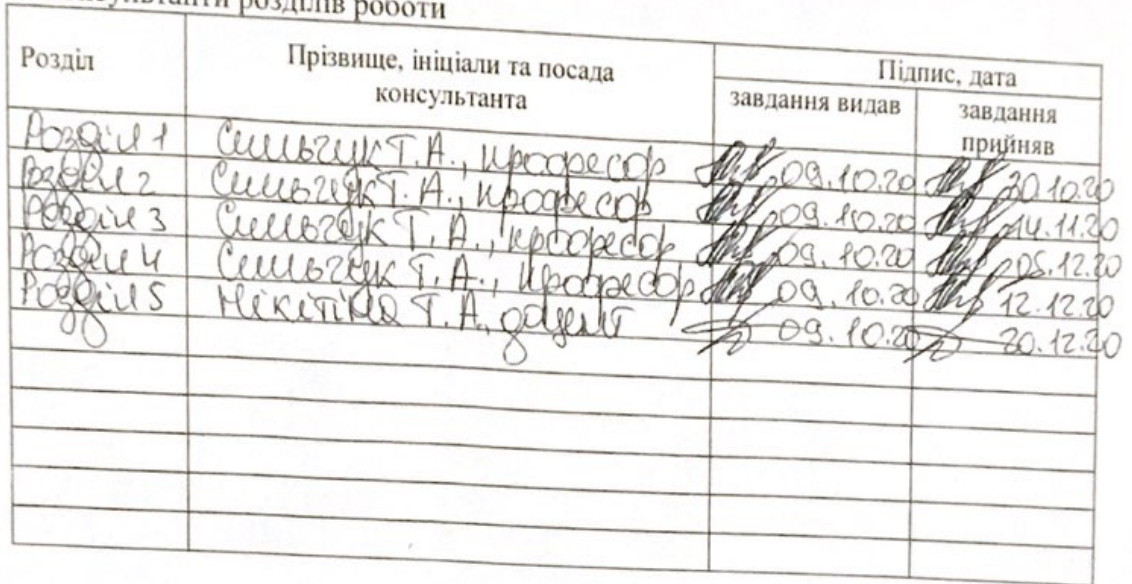 консультанти розділів роботи
Розділ Прізвище, ініціали та посада консультанта Підпис, дата
завдання видав завдання прийняв
Розділ 1 Сильчук Т.А., професор 09.10.20 30.10.20
Розділ 2 Сильчук Т.А., професор 09.10.20 14.11.20
Розділ 3 Сильчук Т.А., професор 09.10.20 05.12.20
Розділ 4 Сильчук Т.А., професор 09.10.20 12.12.20
Розділ 5 Нікітіна Т.А., доцент 09.10.20 20.12.20